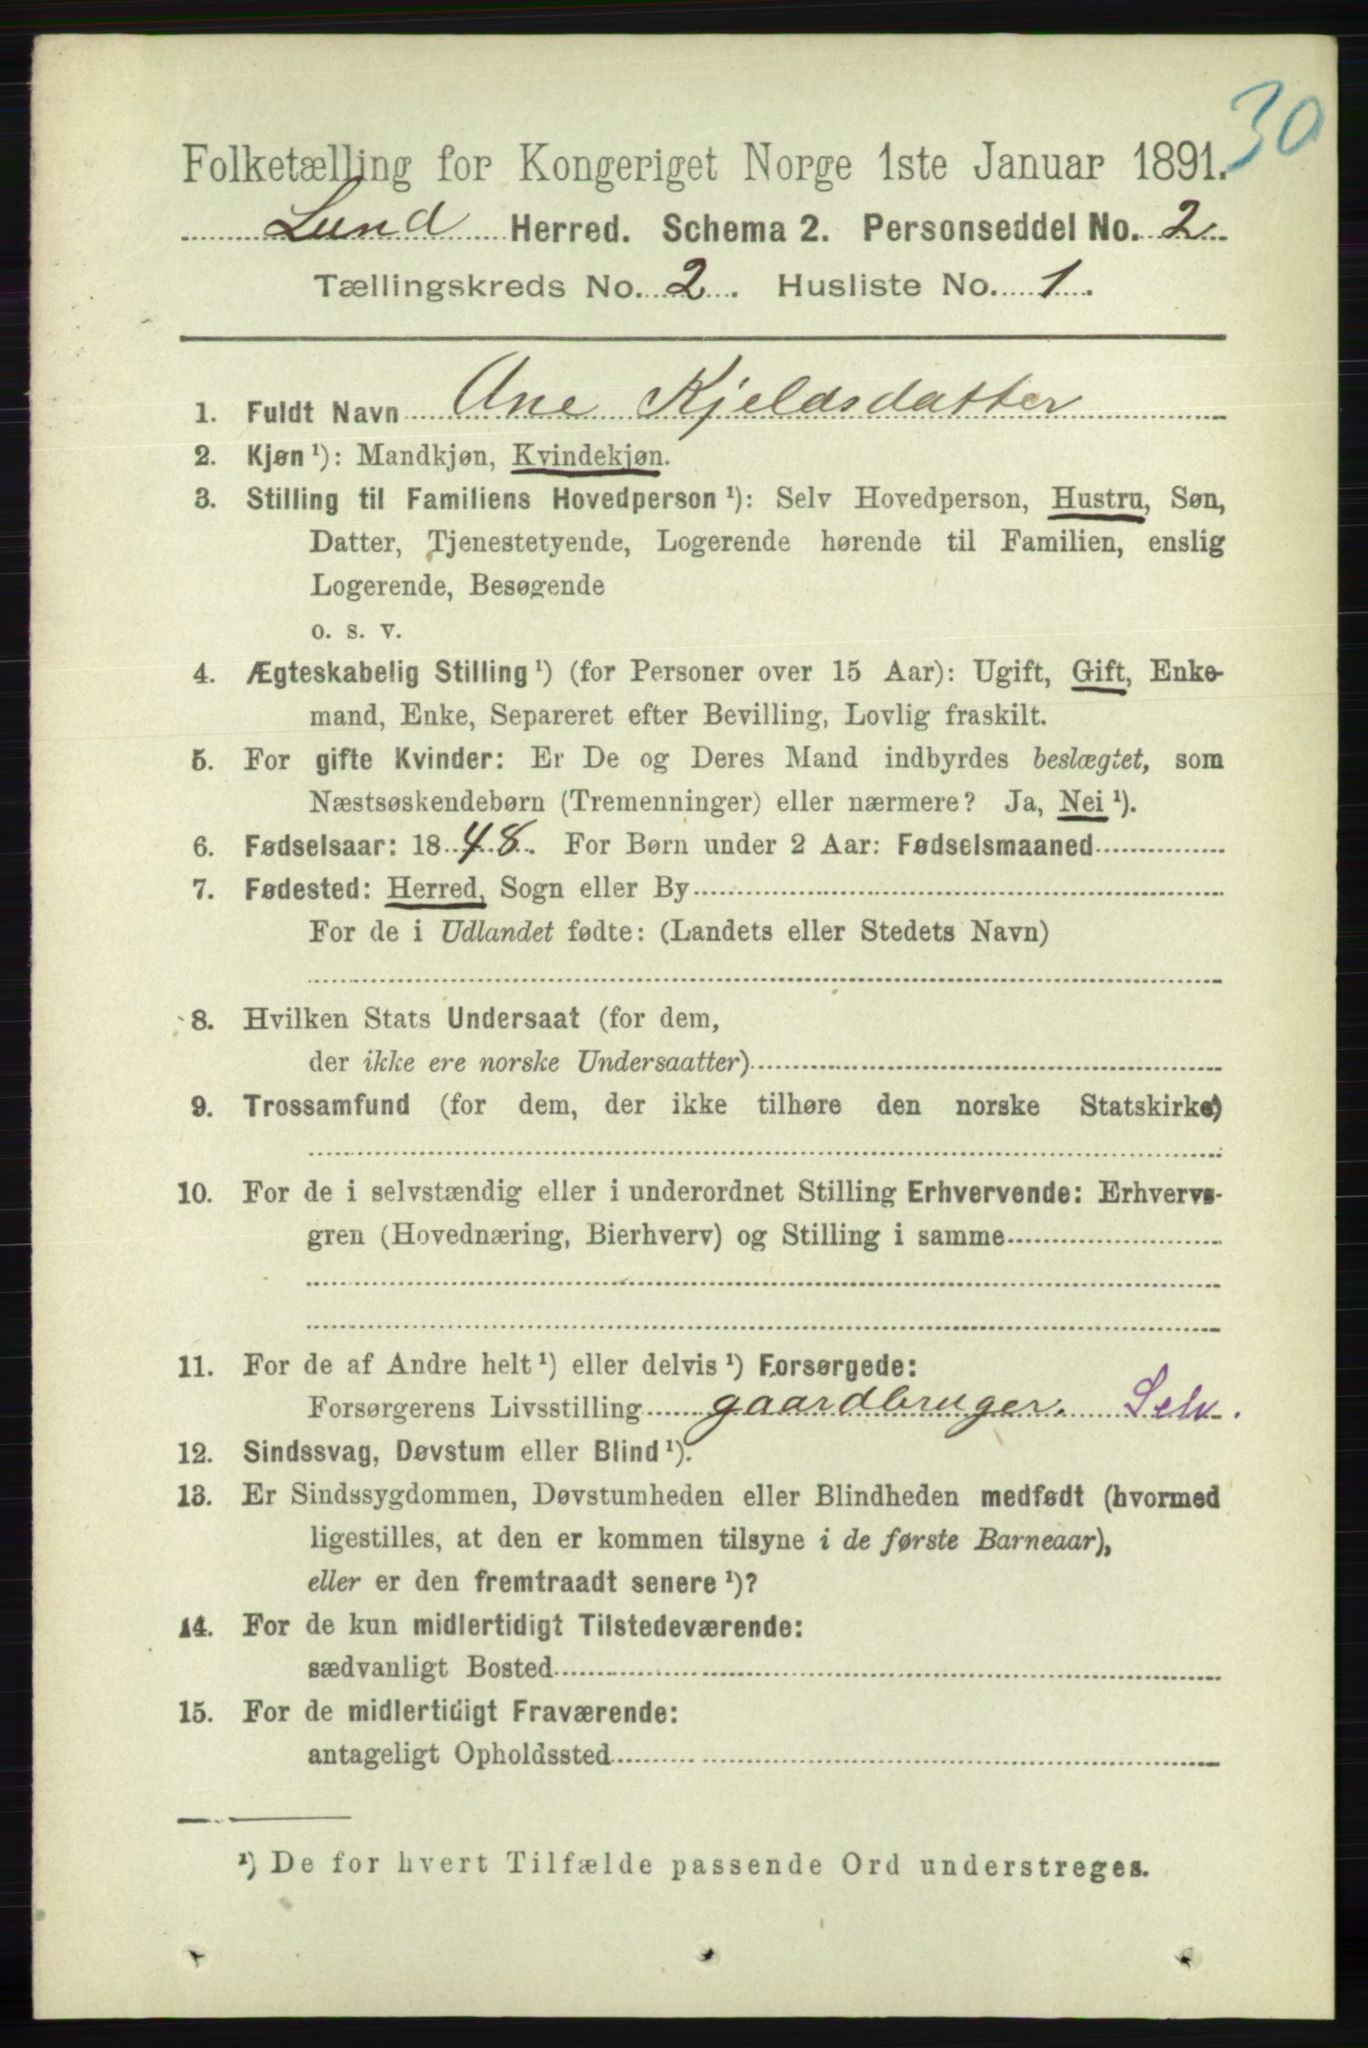 30
Folketælling for Kongeriget Norge 1ste Januar 1891.
Lund Herred. Schema 2. Personseddel No. 2
Tællingskreds No. 2. Husliste No. 1.
1. Fuldt Navn Ane Kjeldsdatter
2. Kjøn ¹): Mandkjøn, Kvindekjøn.
3. Stilling til Familiens Hovedperson ¹): Selv Hovedperson, Hustru, Søn,
Datter, Tjenestetyende, Logerende hørende til Familien, enslig
Logerende, Besøgende
o. s. v.
4. Ægteskabelig Stilling ¹) (for Personer over 15 Aar): Ugift, Gift, Enke-
mand, Enke, Separeret efter Bevilling, Lovlig fraskilt.
5. For gifte Kvinder: Er De og Deres Mand indbyrdes beslægtet, som
Næstsøskendebørn (Tremenninger) eller nærmere? Ja, Nei ¹).
6. Fødselsaar: 1848. For Børn under 2 Aar: Fødselsmaaned
7. Fødested: Herred, Sogn eller By
For de i Udlandet fødte: (Landets eller Stedets Navn)
8. Hvilken Stats Undersaat (for dem,
der ikke ere norske Undersaatter)
9. Trossamfund (for dem, der ikke tilhøre den norske Statskirke)
10. For de i selvstændig eller i underordnet Stilling Erhvervende: Erhvervs-
gren (Hovednæring, Bierhverv) og Stilling i samme
11. For de af Andre helt ¹) eller delvis ¹) Forsørgede:
Forsørgerens Livsstilling gaardbruger. Selv.
12. Sindssvag, Døvstum eller Blind ¹).
13. Er Sindssygdommen, Døvstumheden eller Blindheden medfødt (hvormed
ligestilles, at den er kommen tilsyne i de første Barneaar),
eller er den fremtraadt senere ¹)?
14. For de kun midlertidigt Tilstedeværende:
sædvanligt Bosted
15. For de midlertidigt Fraværende:
antageligt Opholdssted
¹) De for hvert Tilfælde passende Ord understreges.